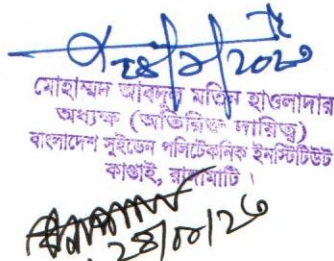 ২৪/৯/২০২৩
মোহাম্মদ আবদুল মতিন হাওলাদার
অধ্যক্ষ (অতিরিক্ত দায়িত্ব)
বাংলাদেশ সুইডেন পলিটেকনিক ইনস্টিটিউট
কাপ্তাই, রাঙ্গামাটি।